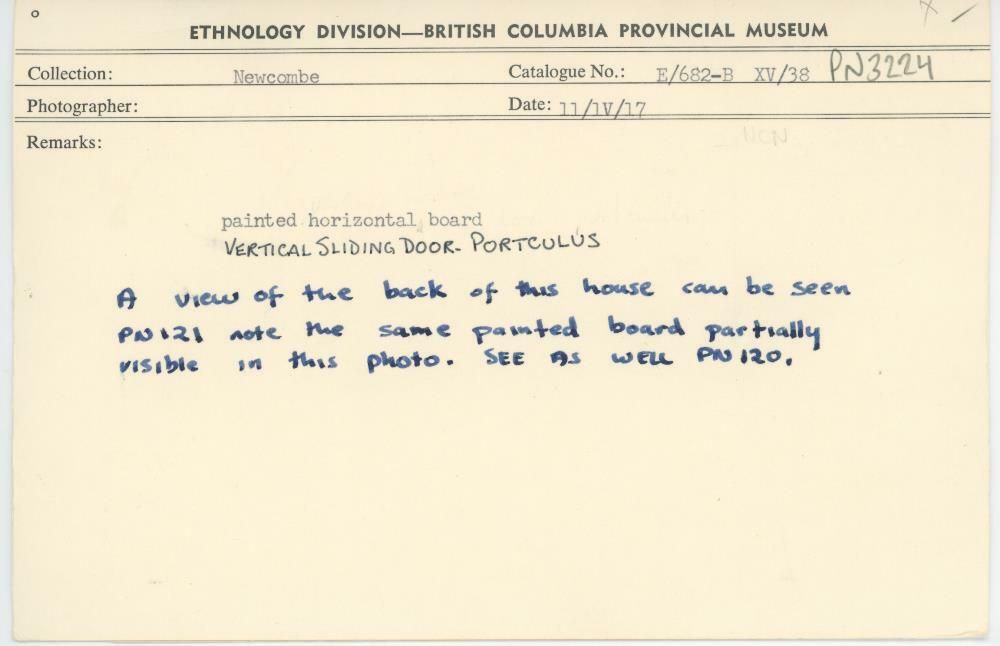 ETHNOLOGY DIVISION—BRITISH COLUMBIA PROVINCIAL MUSEUM
Collection: Newcombe Catalogue No.: E/682-B XV/38 PN3224
Photographer: Date: 11/1V/17
Remarks:
painted horizontal board
VERTICAL SLIDING DOOR - PORTCULUS
A view of the back of this house can be seen
PN 121 note the same painted board partially
visible in this photo. SEE AS WELL PN 120.